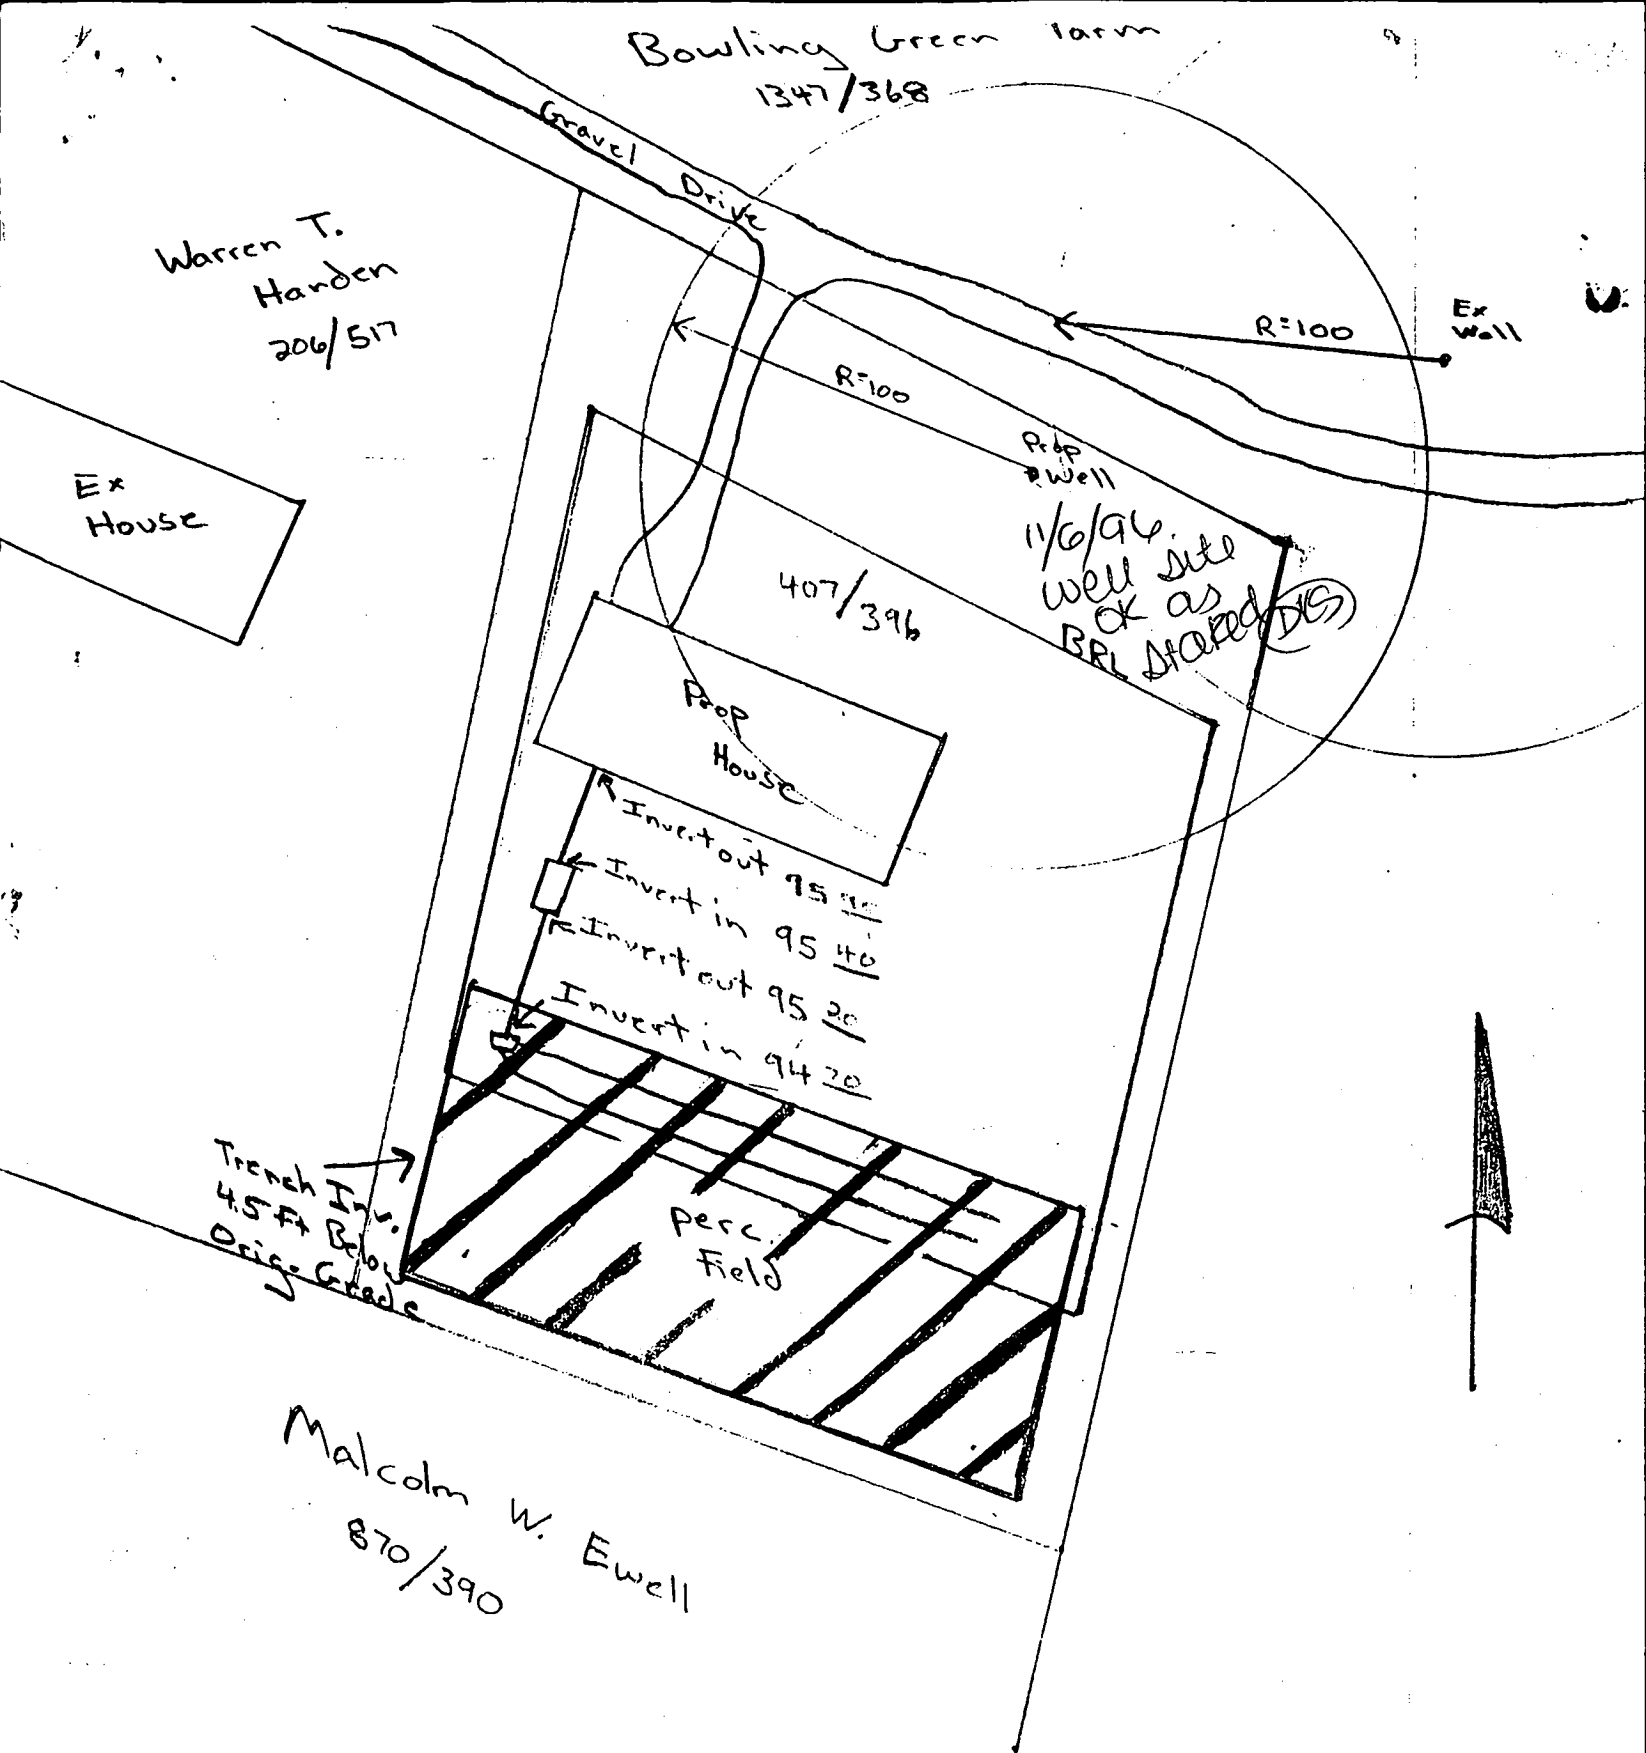 Bowling Green Farm
1347/368
Gravel Drive
Warren T.
Harden
206/517
R=100
Ex
Well
R=100
Prop
Well
11/6/96
well site
OK as
staked DKS
BRL
Ex
House
407/396
Prop
House
Invert out 95
Invert in 95 40
Invert out 95 20
Invert in 94 20
Trench Inv.
4.5 Ft Below
Orig. Grade
perc.
Field
Malcolm W. Ewell
870/390